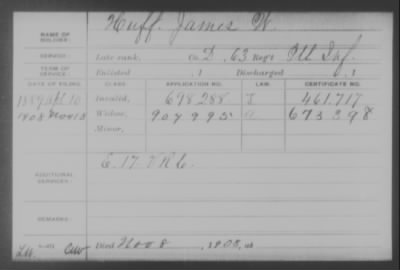 NAME OF SOLDIER: Huff, James W.
SERVICE: Late rank, Co. D, 63 Reg't Ill Inf.
TERM OF SERVICE: Enlisted , 1 Discharged , 1
DATE OF FILING. CLASS. APPLICATION NO. LAW. CERTIFICATE NO.
1889 Apl 10 Invalid, 698288 J 461.717
1908 Nov 18 Widow, 907995 673398
Minor,
ADDITIONAL SERVICES: E. 17 V R C.
REMARKS:
Died Nov 8, 1908, at